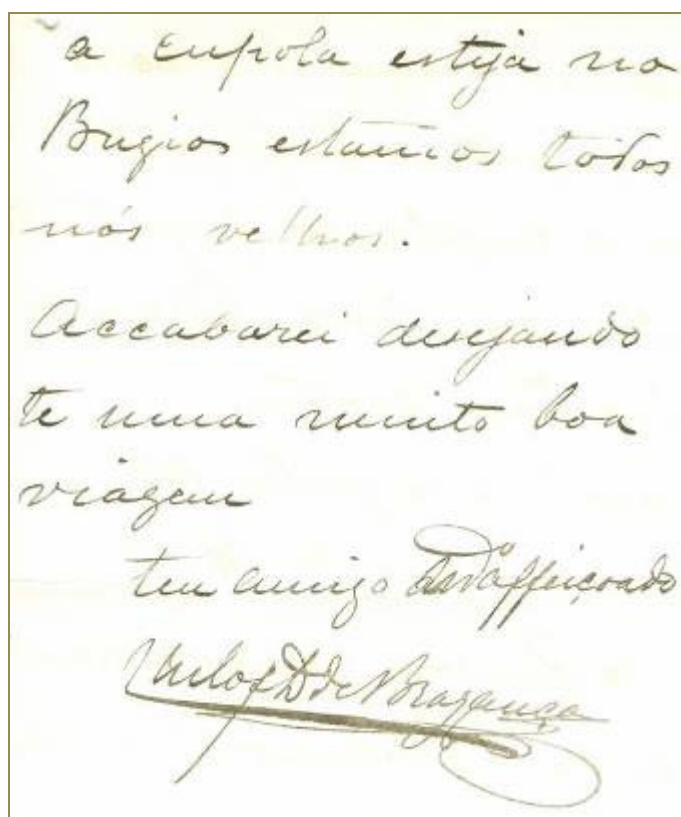 a cupola esteja no
Bugios estamos todos
nós velhos.
Accabarei desejando
te uma muito boa
viagem
teu amigo affeiçoado
Carlos D. de Bragança